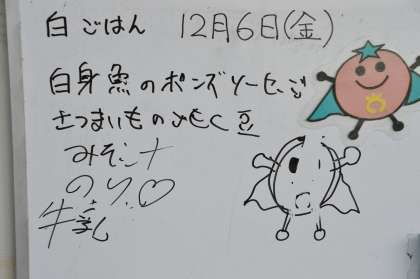 白ごはん 12月6日(金)
白身魚のポンズソーセージ
さつまいもの
豆
みそ汁
のり♡
牛乳